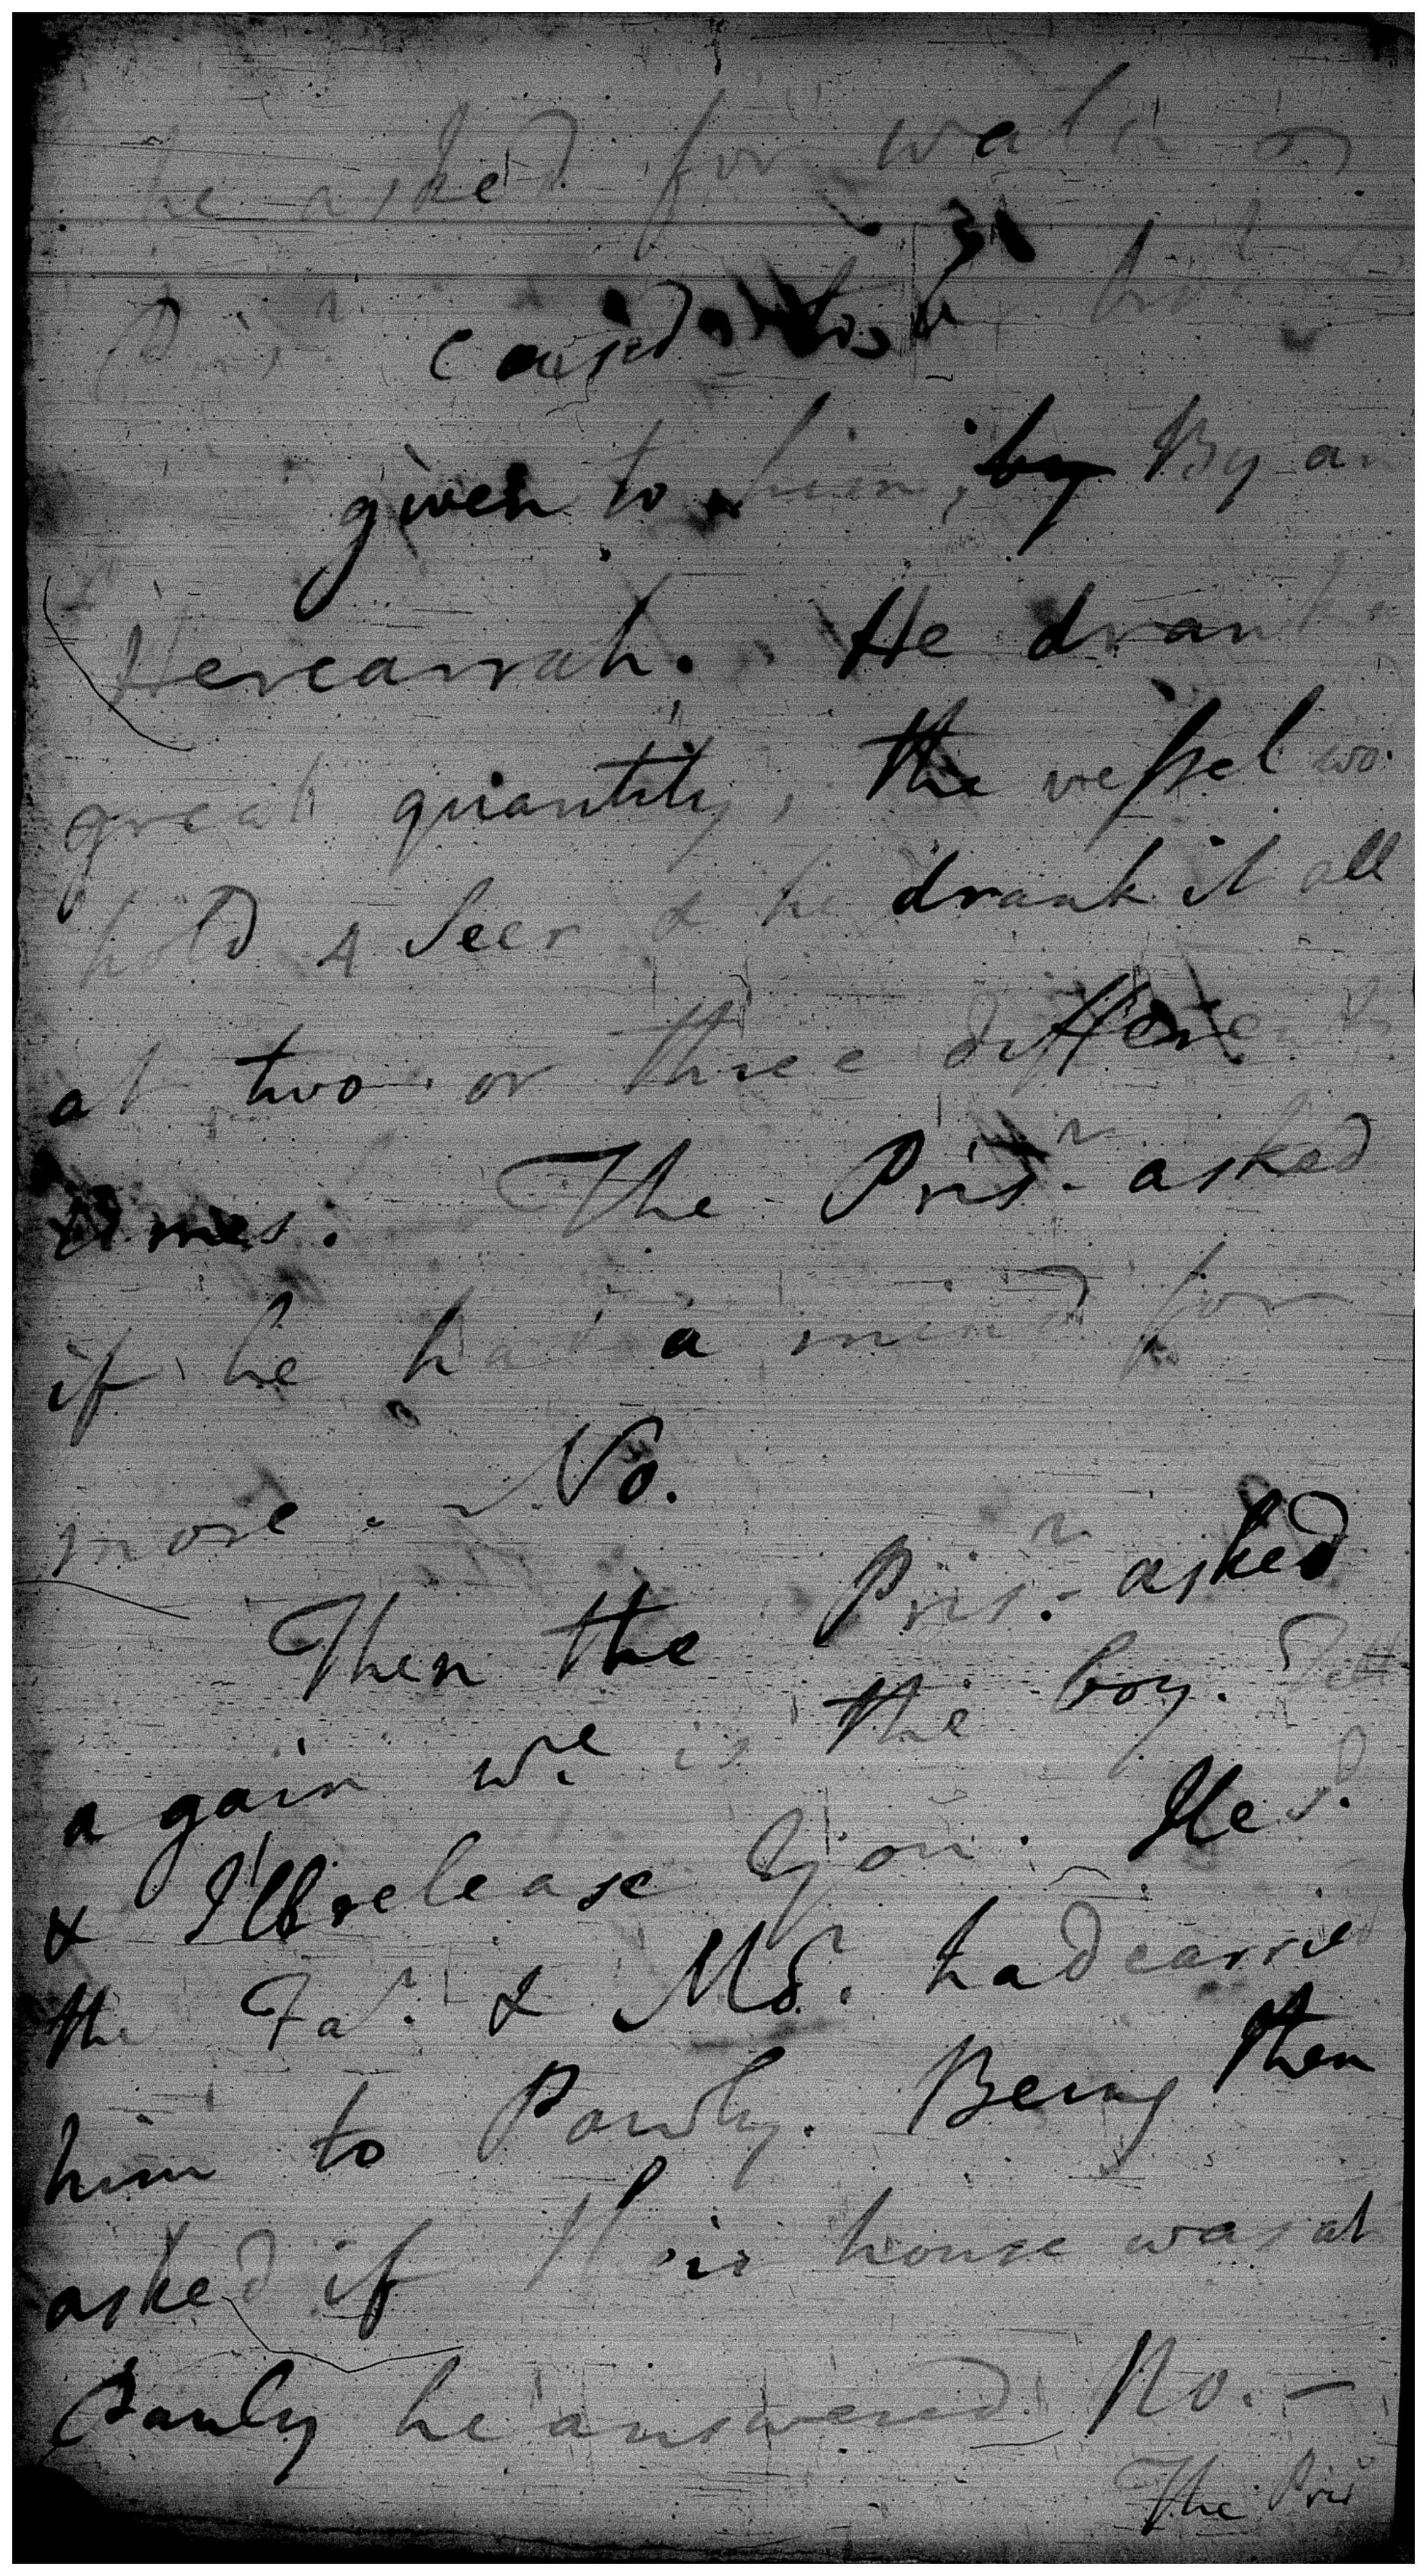 he asked for water &
Pris.r caused to be
given to him, by By an
Hercarrah. He drank a
great quantity, the vessel wo.
hold 4 Seer & he drank it all
at two or three different
times. The Pris.r asked
if he had a mind for
more. ~ No.
Then the Pris.r asked
again w.e is the boy. Tell
& I'll release You. He s.d
the Fa.r & Mo.r had carried
him to Pawly. Being then
asked if their house was at
Pauly he answered No. —
The Pris